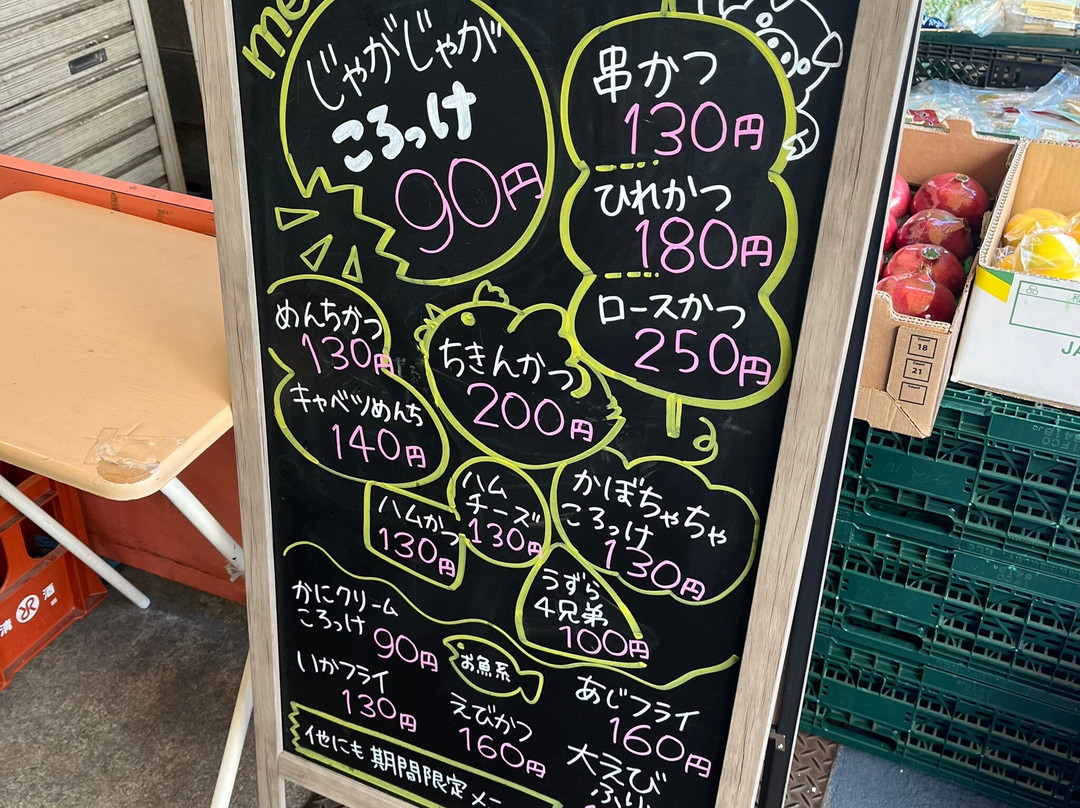 me
じゃがじゃが
ころっけ
90円
串かつ
130円
ひれかつ
180円
ロースかつ
250円
めんちかつ
130円
キャベツめんち
140円
ちきんかつ
200円
ハムかつ
130円
ハム
チーズ
130円
かぼちゃちゃ
ころっけ
130円
うずら
4兄弟
100円
かにクリーム
ころっけ
90円
お魚系
いかフライ
130円
えびかつ
160円
あじフライ
160円
大えび
ふりゃ
他にも期間限定メニ
18
21
品
JA
清
酒